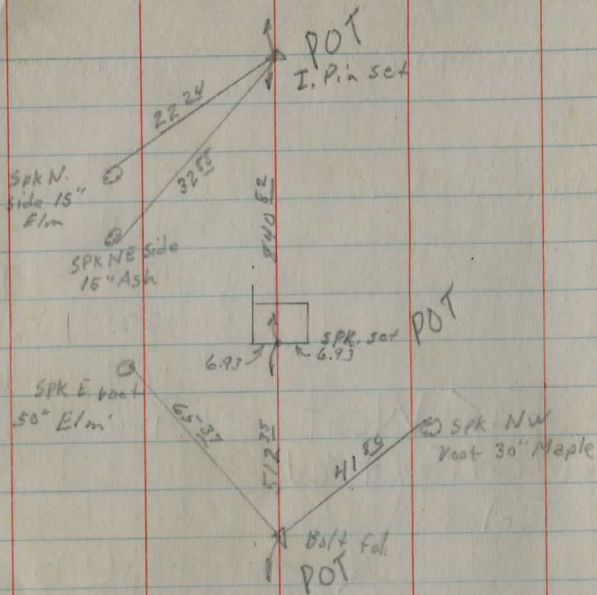 POT
I. Pin set
22 24
32 55
Spk N.
side 15"
Elm
SPK NE side
15" Ash
840 82
SPK. set
POT
6.93
6.93
SPK E root
50" Elm
65 37
512 35
41 89
Spk NW
root 30" Maple
Bolt fd.
POT